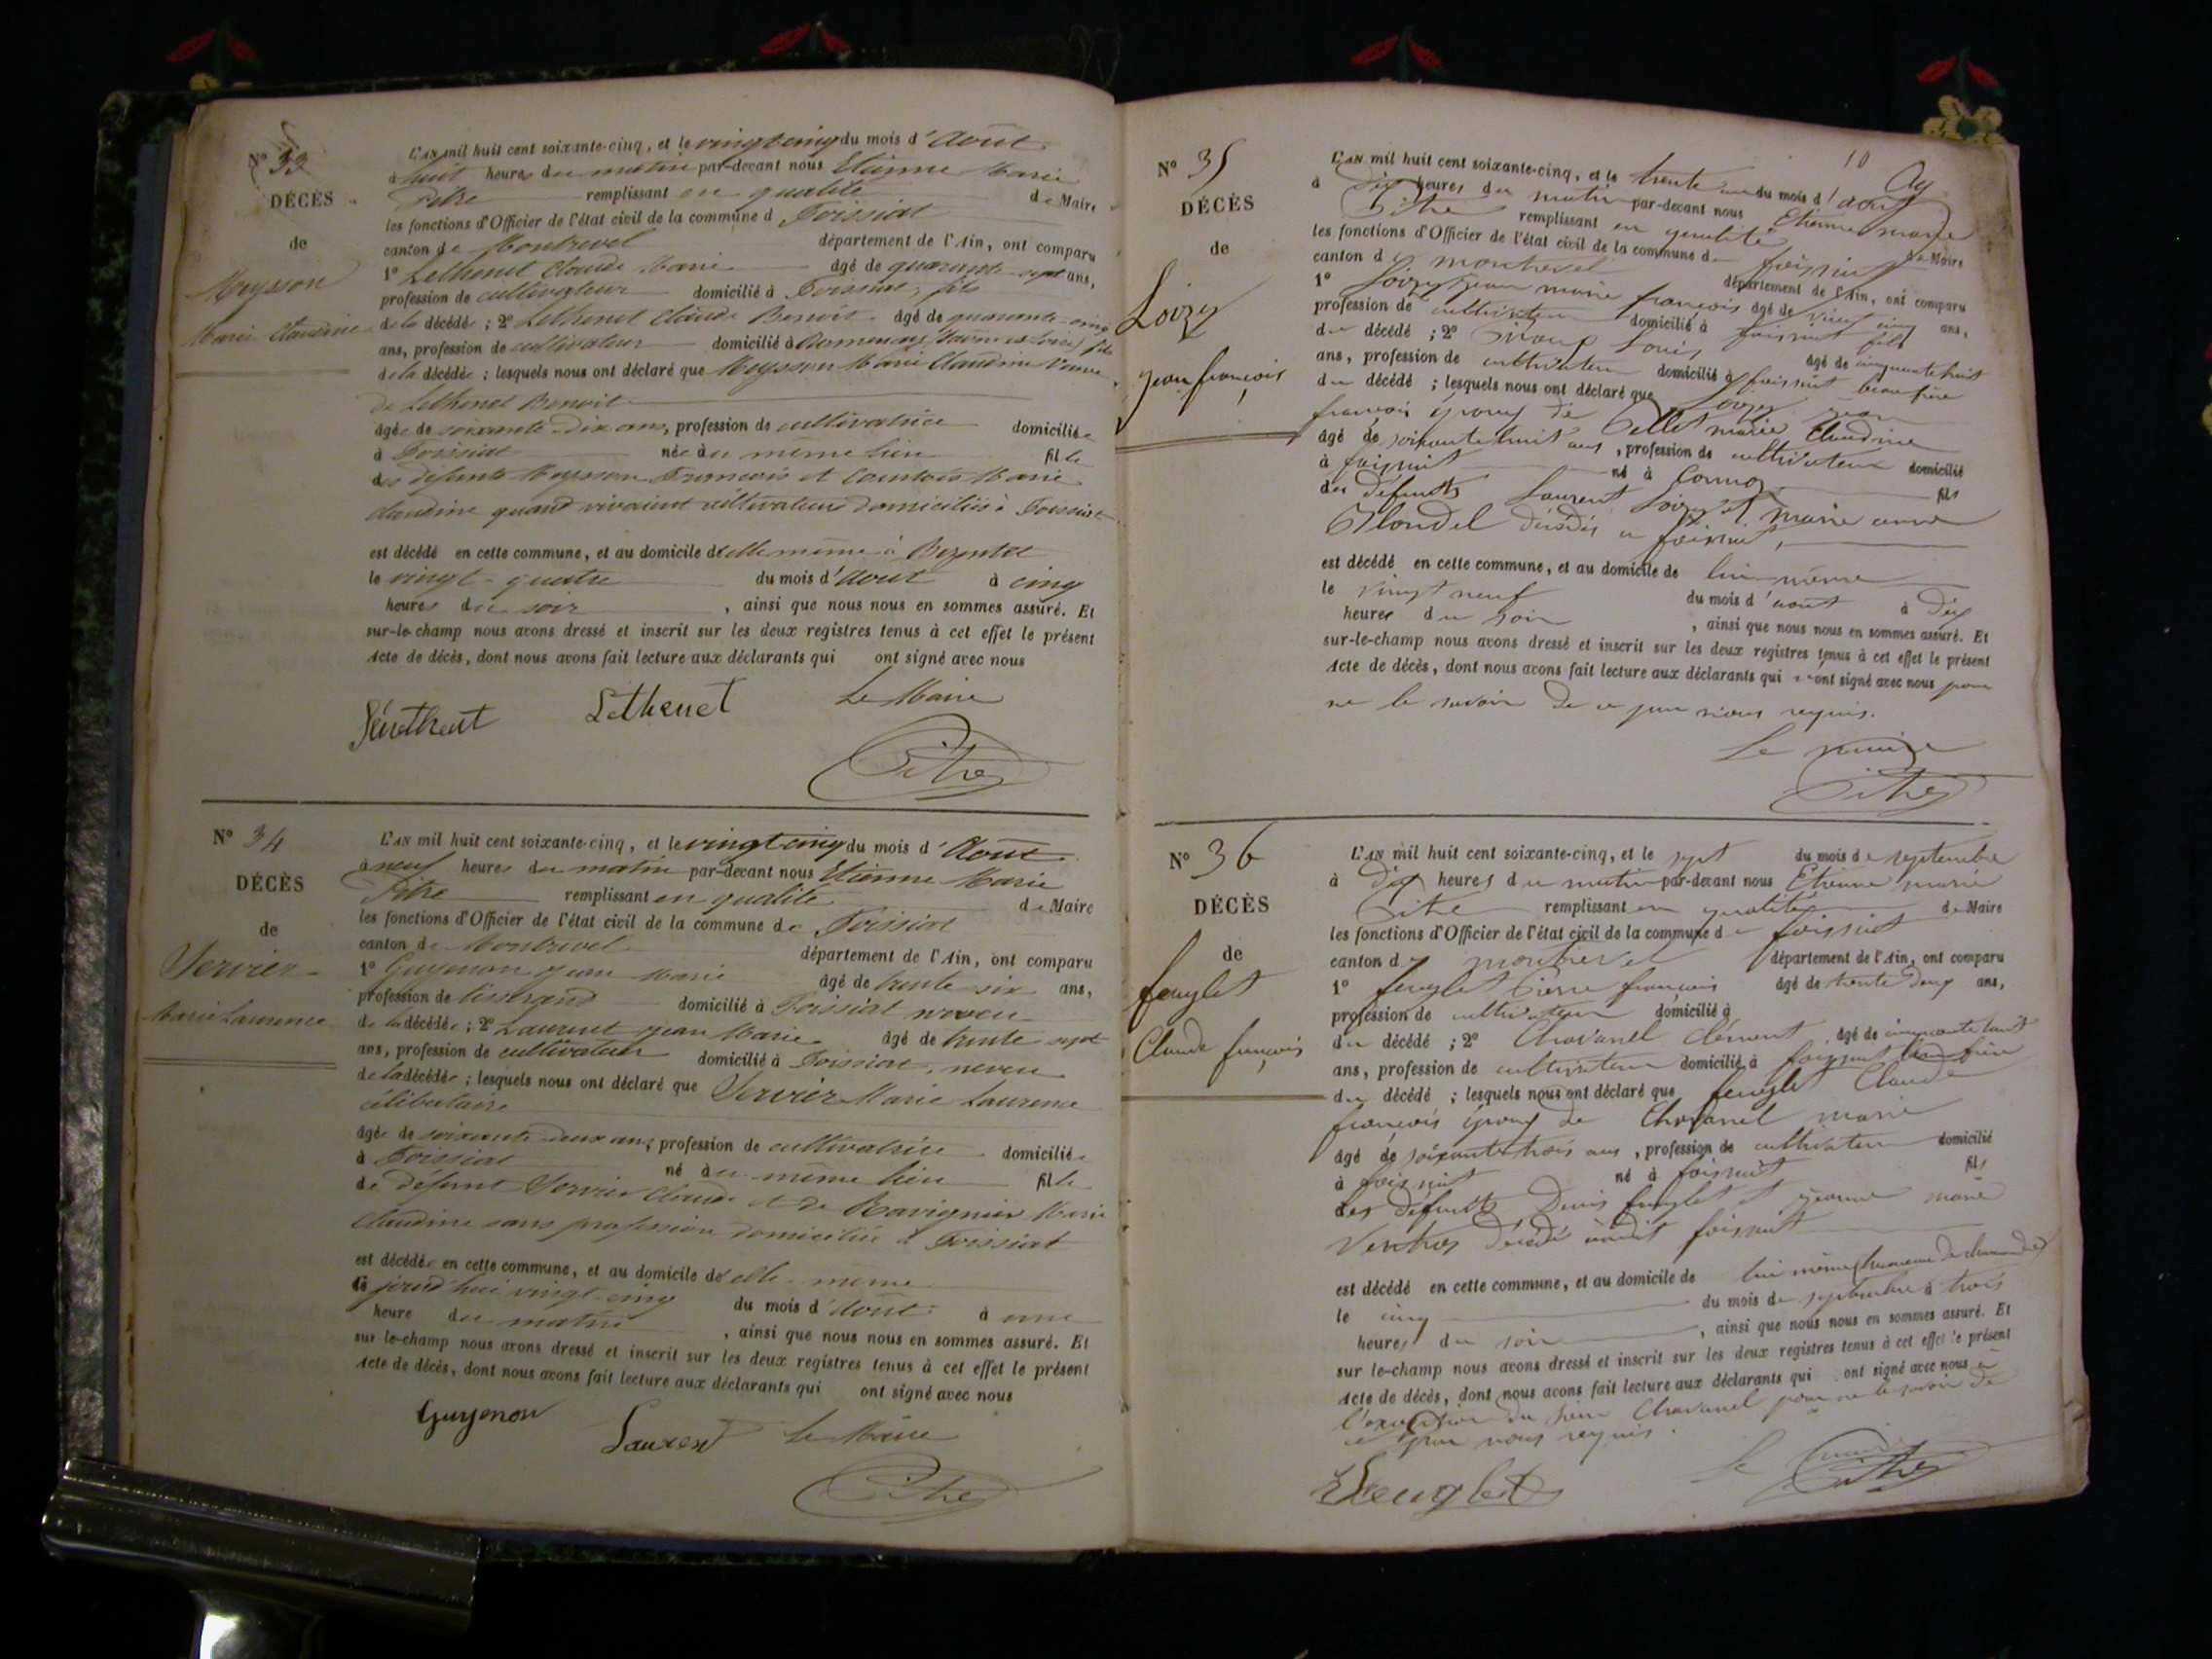 N° 33
DÉCÈS
de
Meysson
Marie Claudine
L'AN mil huit cent soixante-cinq, et le vingt cinq du mois d'Août
à huit heures du matin par-devant nous Etienne Marie
Pitre remplissant en qualité de Maire
les fonctions d'Officier de l'état civil de la commune d Foissiat
canton de Montrevel département de l'Ain, ont comparu
1° Lethenet Claude Marie âgé de quarante-sept ans,
profession de cultivateur domicilié à Foissiat, fils
de la décédée ; 2° Lethenet Claude Benoit âgé de quarante-cinq
ans, profession de cultivateur domicilié à (Saône et Loire) fils
de la décédée ; lesquels nous ont déclaré que Meysson Marie Claudine Veuve
de Lethenet Benoit
âgée de soixante-dix ans, profession de cultivatrice domiciliée
à Foissiat née au même lieu fille
des défunts Meysson François et Marie
claudine quand vivaient cultivateurs domiciliés à Foissiat
est décédé en cette commune, et au domicile d'elle même à
le vingt-quatre du mois d'Août à cinq
heures du soir , ainsi que nous nous en sommes assuré. Et
sur-le-champ nous avons dressé et inscrit sur les deux registres tenus à cet effet le présent
Acte de décès, dont nous avons fait lecture aux déclarants qui ont signé avec nous
Lethenet Le Maire
Pitre
N° 34
DÉCÈS
de
Servier
Marie Laurence
L'AN mil huit cent soixante-cinq, et le vingt cinq du mois d'Août
à neuf heures du matin par-devant nous Etienne Marie
Pitre remplissant en qualité de Maire
les fonctions d'Officier de l'état civil de la commune de Foissiat
canton de Montrevel département de l'Ain, ont comparu
1° Guyenon Jean Marie âgé de trente six ans,
profession de tisserand domicilié à Foissiat neveu
de la décédée ; 2° Laurent Jean Marie âgé de trente sept
ans, profession de cultivateur domicilié à Foissiat, neveu
de la décédée ; lesquels nous ont déclaré que Servier Marie Laurence
célibataire
âgée de soixante deux ans, profession de cultivatrice domiciliée
à Foissiat né au même lieu fille
de défunt Servier Claude et de Ravignier Marie
Claudine sans profession domiciliée à Foissiat
est décédée en cette commune, et au domicile d'elle-même
jourd'hui vingt-cinq du mois d'Août à une
heure du matin , ainsi que nous nous en sommes assuré. Et
sur le-champ nous avons dressé et inscrit sur les deux registres tenus à cet effet le présent
Acte de décès, dont nous avons fait lecture aux déclarants qui ont signé avec nous
Guyenon Laurent Le Maire
Pitre
10
N° 35
DÉCÈS
de
Loizy
jean françois
L'AN mil huit cent soixante-cinq, et le trente du mois d'août
à dix heures du matin par-devant nous Etienne marie
Pitre remplissant en qualité de Maire
les fonctions d'Officier de l'état civil de la commune de foissiat
canton de montrevel département de l'Ain, ont comparu
1° Loizy jean marie françois âgé de vingt cinq ans,
profession de cultivateur domicilié à foissiat fils
du décédé ; 2° Louis âgé de cinquante huit
ans, profession de cultivateur domicilié à foissiat beau frère
du décédé ; lesquels nous ont déclaré que Loizy jean
françois époux de marie Claudine
âgé de soixante huit ans, profession de cultivateur domicilié
à foissiat né à Cormoz fils
des défunts Laurent Loizy et marie anne
Blondel décédés à foissiat,
est décédé en cette commune, et au domicile de lui-même
le vingt neuf du mois d'août à dix
heures du soir , ainsi que nous nous en sommes assuré. Et
sur-le-champ nous avons dressé et inscrit sur les deux registres tenus à cet effet le présent
Acte de décès, dont nous avons fait lecture aux déclarants qui n'ont signé avec nous pour
ne le savoir de ce par nous requis.
Le maire
Pitre
N° 36
DÉCÈS
de
feuglet
Claude françois
L'AN mil huit cent soixante-cinq, et le sept du mois de septembre
à dix heures du matin par-devant nous Etienne marie
Pitre remplissant en qualité de Maire
les fonctions d'Officier de l'état civil de la commune de foissiat
canton de montrevel département de l'Ain, ont comparu
1° feuglet Pierre françois âgé de trente deux ans,
profession de cultivateur domicilié à
du décédé ; 2° Chavanel Clément âgé de cinquante huit
ans, profession de cultivateur domicilié à foissiat beau frère
du décédé ; lesquels nous ont déclaré que feuglet Claude
françois époux de Chavanel marie
âgé de soixante trois ans, profession de cultivateur domicilié
à foissiat né à foissiat fils
des défunts Denis feuglet et jeanne marie
décédé audit foissiat
est décédé en cette commune, et au domicile de lui même
le cinq du mois de septembre à trois
heures du soir , ainsi que nous nous en sommes assuré. Et
sur le-champ nous avons dressé et inscrit sur les deux registres tenus à cet effet le présent
Acte de décès, dont nous avons fait lecture aux déclarants qui ont signé avec nous à
l'exception du sieur Chavanel pour ne le savoir de
ce par nous requis.
Le maire
Feuglet Pitre